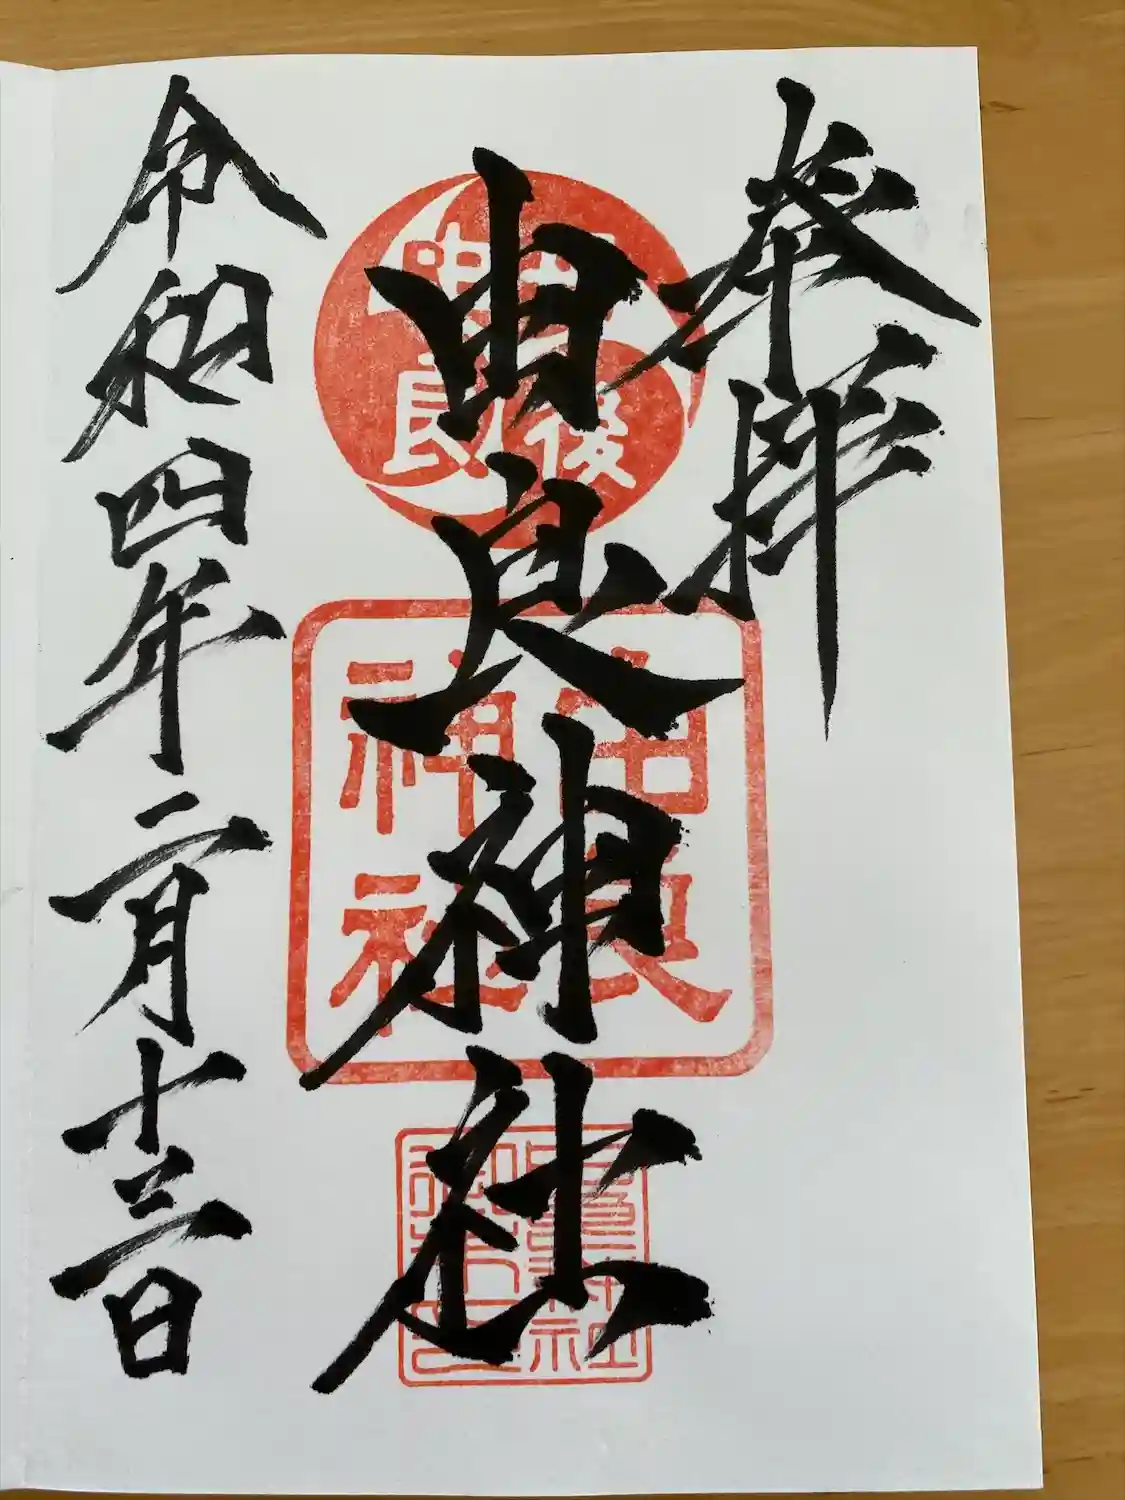 奉拝
由良神社
令和四年二月十三日
丹後
由良
由良
神社